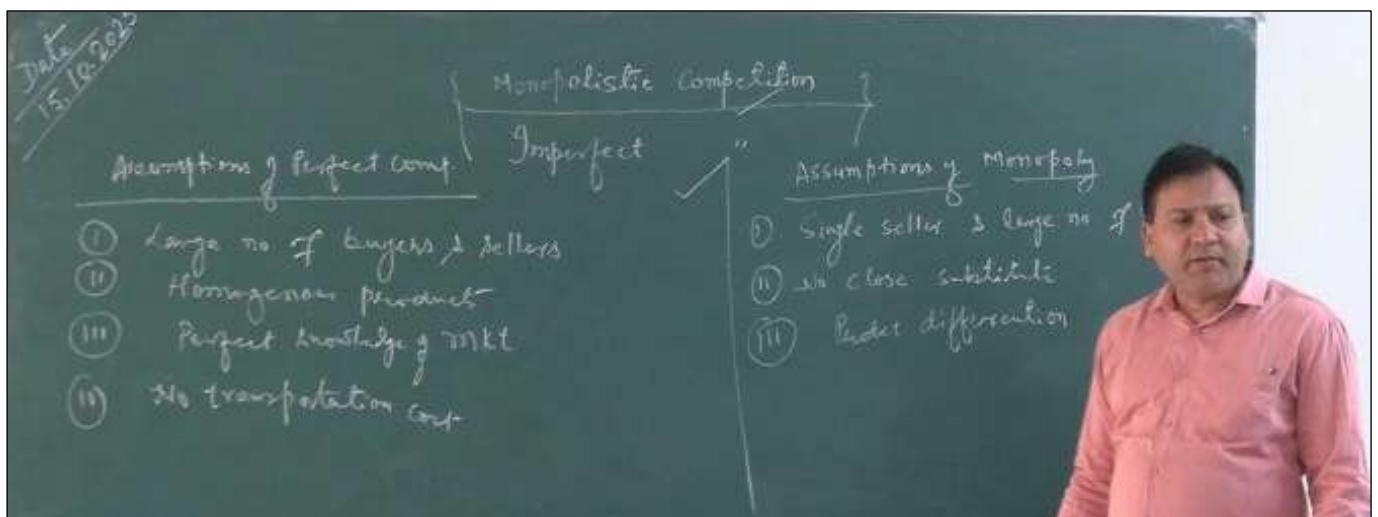 Date
15.10.2025
Monopolistic Competition
Imperfect "
Assumptions of Perfect Comp.
I Large no of buyers & sellers
II Homogenous product
III Perfect knowledge of mkt
IV No transpotation cost
Assumptions of Monopoly
I Single seller & large no of
II No close substitute
III differention